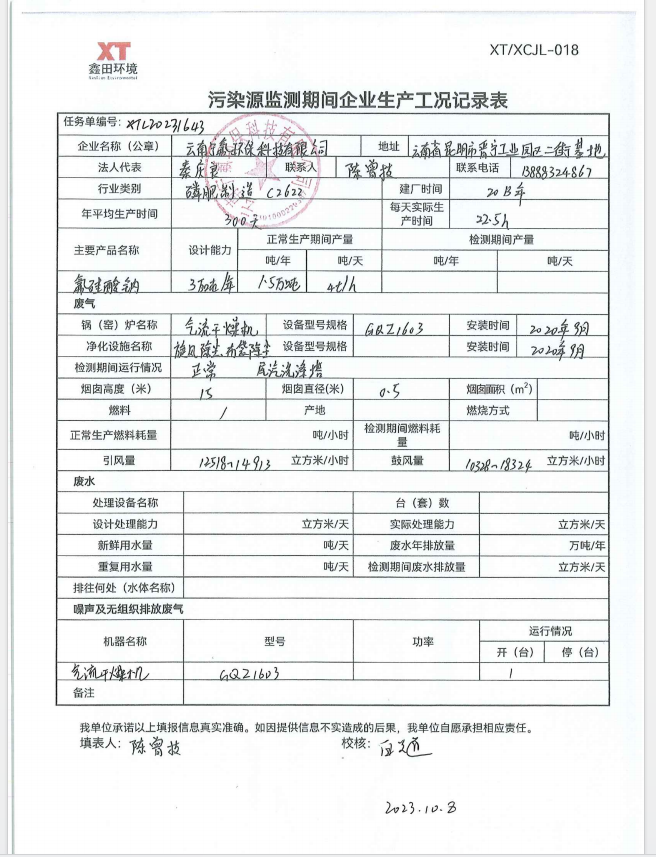 XT
鑫田环境
XT/XCJL-018
污染源监测期间企业生产工况记录表
任务单编号: XTL20231643
企业名称（公章） 云南 环保科技有限公司 地址 云南省昆明市晋宁工业园区二街基地
法人代表 秦 联系人 陈曾技 联系电话 13888324867
行业类别 磷肥制造 C2622 建厂时间 2013年
年平均生产时间 300天 每天实际生产时间 22.5h
主要产品名称 设计能力 正常生产期间产量 检测期间产量
吨/年 吨/天 吨/年 吨/天
氟硅酸钠 3万吨/年 1.5万吨 4t/h
废气
锅（窑）炉名称 气流干燥机 设备型号规格 GQZ1603 安装时间 2020年9月
净化设施名称 旋风除尘、布袋除尘 设备型号规格 安装时间 2020年9月
检测期间运行情况 正常 尾汽洗涤塔
烟囱高度（米） 15 烟囱直径(米） 0.5 烟囱面积（m²）
燃料 / 产地 燃烧方式
正常生产燃料耗量 吨/小时 检测期间燃料耗量 吨/小时
引风量 12518~14913 立方米/小时 鼓风量 10328~18324 立方米/小时
废水
处理设备名称 台（套）数
设计处理能力 立方米/天 实际处理能力 立方米/天
新鲜用水量 吨/天 废水年排放量 万吨/年
重复用水量 吨/天 检测期间废水排放量 立方米/天
排往何处（水体名称）
噪声及无组织排放废气
机器名称 型号 功率 运行情况
开（台） 停（台）
气流干燥机 GQZ1603 1
备注
我单位承诺以上填报信息真实准确。如因提供信息不实造成的后果，我单位自愿承担相应责任。
填表人： 陈曾技 校核：
2023.10.8